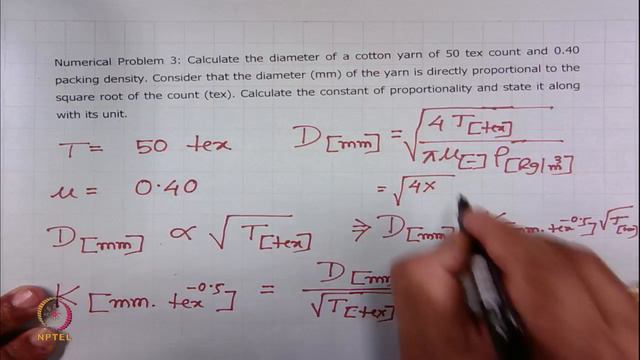 Numerical Problem 3: Calculate the diameter of a cotton yarn of 50 tex count and 0.40
packing density. Consider that the diameter (mm) of the yarn is directly proportional to the
square root of the count (tex). Calculate the constant of proportionality and state it along
with its unit.
T = 50 tex
D[mm] = √(4 T[tex] / πμ[-] ρ[kg/m³])
μ = 0.40
= √4×
D[mm] ∝ √T[tex] ⇒ D[mm] mm. tex^-0.5] √T[tex]
K [mm. tex^-0.5] = D[mm / √T[tex]
NPTEL